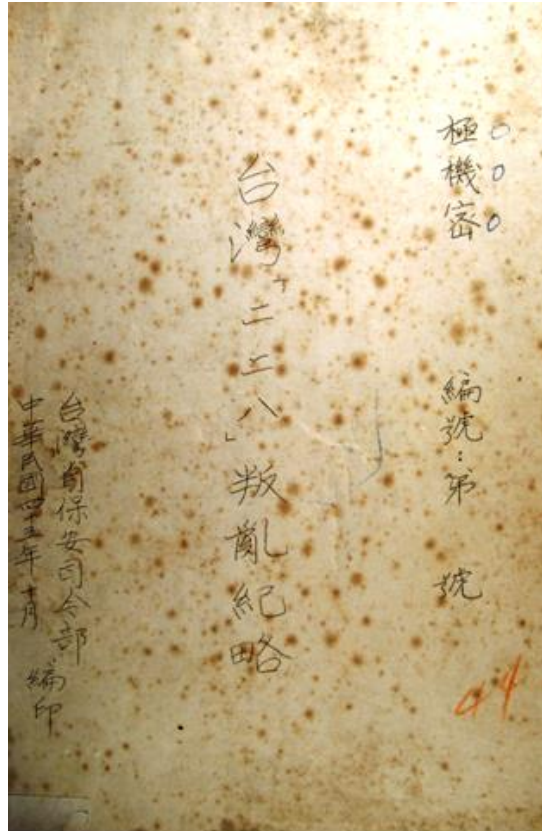 極機密 編號：第 號
台灣「二二八」叛亂紀略
台灣省保安司令部
編印
中華民國四十五年
44